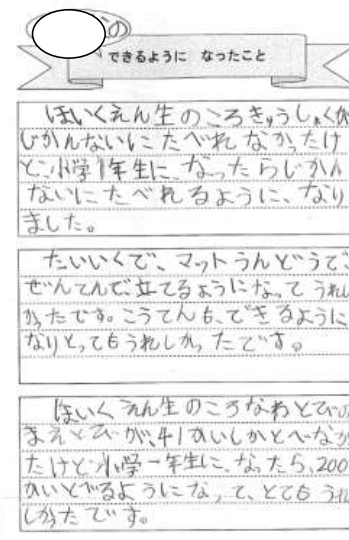 の
できるように なったこと
ほいくえん生のころきゅうしょくが
じかんないにたべれなかったけ
ど、小学1年生に、なったらじかん
ないにたべれるように、なり
ました。
たいいくで、マットうんどうで、
ぜんてんで立てるようになって うれし
かったです。こうてんも、できるように
なりとってもうれしかったです。
ほいくえん生のころなわとびの
まえとびが、41かいしかとべなか
たけど小学一年生に、なったら、200
かいとべるようになって、とても うれ
しかったです。